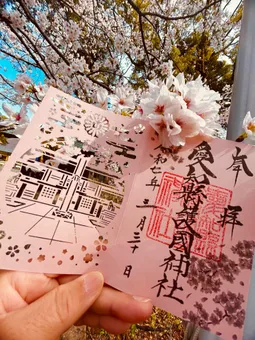 奉拝
愛知縣護國神社
令和七年三月三十日